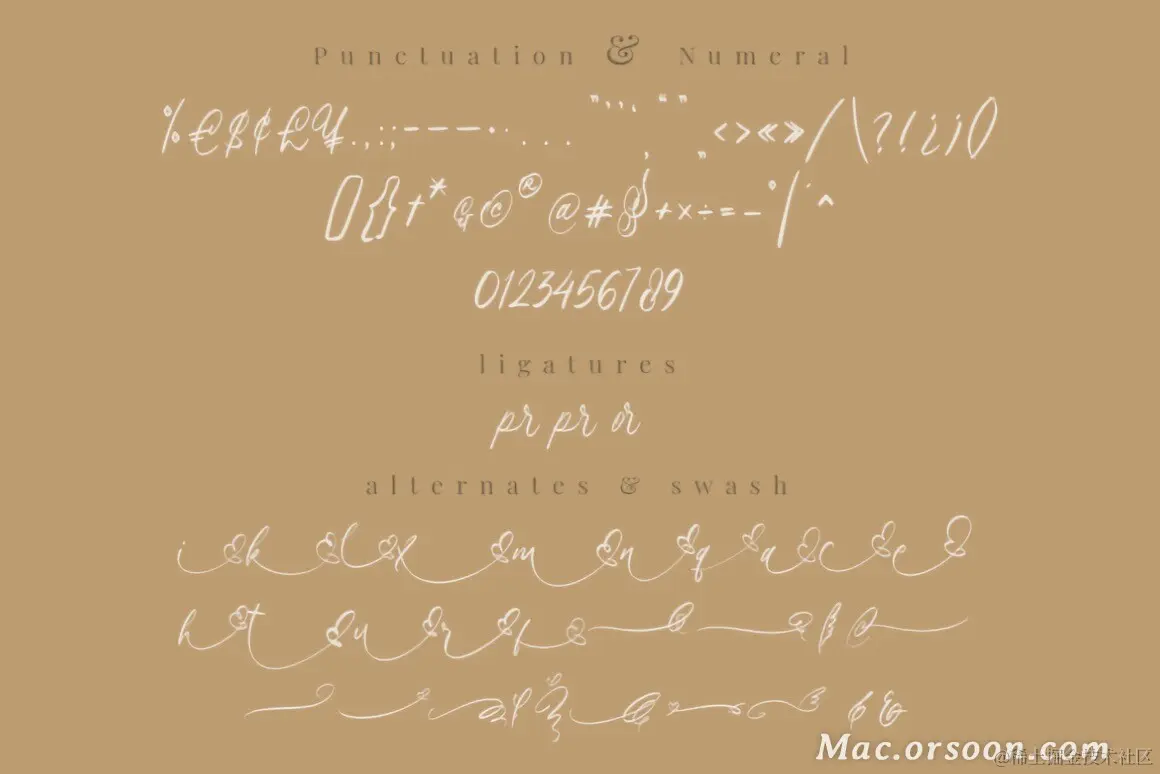 Punctuation & Numeral
% € $ ¢ £ ¥ . , : ; - – — · . . . . " ' ' , “ ” ‚ „ < > « » / \ ? ! ¿ ¡ ( )
[ ] { } † * & © ® @ # § + × ÷ = − ° / ^
0123456789
ligatures
pr pr or
alternates & swash
i k l x m n q a c e
h t u r
Mac.orsoon.com
@稀土掘金技术社区